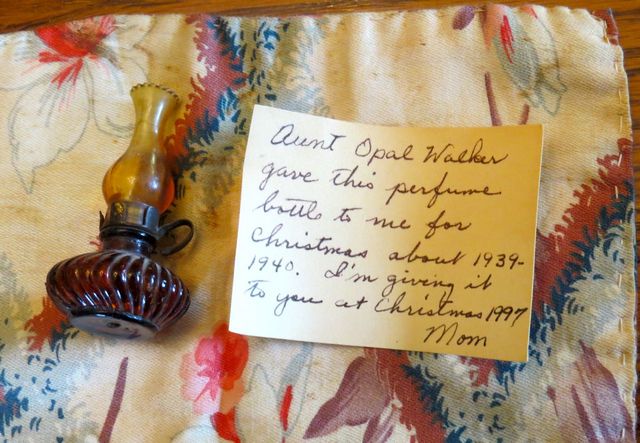 Aunt Opal Walker
gave this perfume
bottle to me for
Christmas about 1939-
1940. I'm giving it
to you at Christmas 1997
Mom